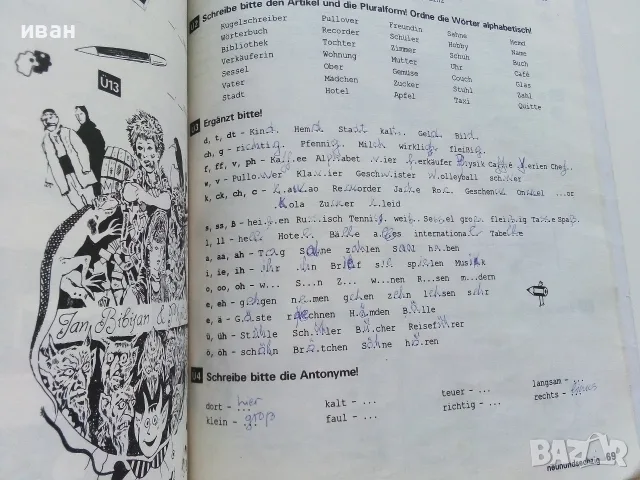 иван
Ü13
Schreibe bitte den Artikel und die Pluralform! Ordne die Wörter alphabetisch!
Kugelschreiber Pullover Freundin Sahne Hemd
Wörterbuch Recorder Schüler Hobby Name
Bibliothek Tochter Zimmer Schuh Buch
Verkäuferin Wohnung Mutter Uhr Café
Sessel Ober Gemüse Couch Glas
Vater Mädchen Zucker Stuhl Zahl
Stadt Hotel Apfel Taxi Quitte
Ergänzt bitte!
d, t, dt - Kind. Hemd Stadt kalt.. Geld. Bild.
ch, g - richtig. Pfennig. Milch wirklich fleißig.
f, ff, v, ph - Kaffee Alphabet vier Verkäufer Physik Café Ferien Chef.
w, v - Pullover Klavier Geschwister Volleyball schwer
k, ck, ch, c - Kakao Recorder Jacke Rock. Geschenk Onkel ...or
Kola Zucker Kleid
s, ss, ß - heißen Russisch Tennis. weiß. Sessel groß. fleißig Tasse Spaß.
l, ll - hell Hotel. Bälle alles international. Tabelle
a, aa, ah - Tag Sahne zahlen Saal haben
i, ie, ih - ihr ihn Brief sie spielen Musik
o, oo, oh - W...S...n Z... w...nen R...sen m...dern
e, eh - gehen nehmen geben zehn lehsen sehr
e, ä - Gäste rechnen Hemden Bälle
ü, üh - Stühle Schüler Bücher Reiseführer
ö, öh - schön Brötchen Söhne hören
Schreibe bitte die Antonyme!
dort - hier kalt - ... teuer - ... langsam - ...
klein - groß faul - ... richtig - ... rechts - links
Jan Bibijan &
neunundsechzig 69
BAZAR
bg